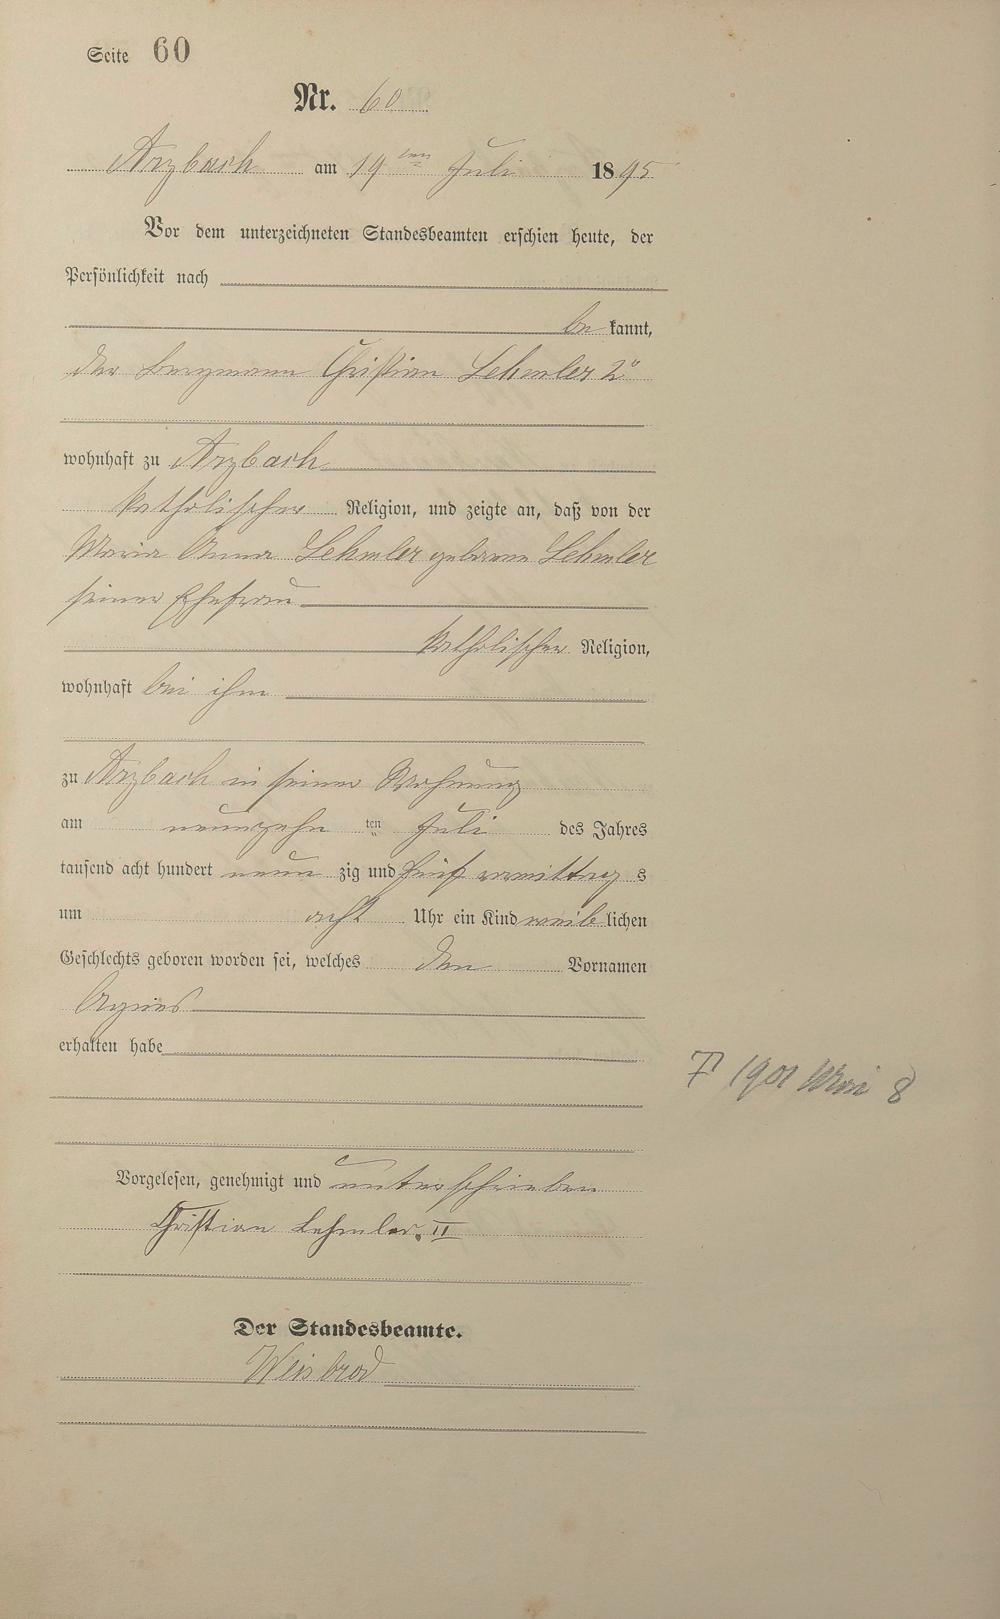 Seite 60
Nr. 60
Arzbach am 19ten Juli 1895
Vor dem unterzeichneten Standesbeamten erschien heute, der
Persönlichkeit nach
be kannt,
der Bergmann Christian Lehmler 2r
wohnhaft zu Arzbach
katholischer Religion, und zeigte an, daß von der
Maria Anna Lehmler geborene Lehmler
seiner Ehefrau
katholischer Religion,
wohnhaft bei ihm
zu Arzbach in seiner Wohnung
am neunzehn ten Juli des Jahres
tausend acht hundert neun zig und fünf vormittag s
um acht Uhr ein Kind weib lichen
Geschlechts geboren worden sei, welches den Vornamen
Agnes
erhalten habe
† 1901 Mai 8
Vorgelesen, genehmigt und unterschrieben
Christian Lehmler. II
Der Standesbeamte.
Weisbrod